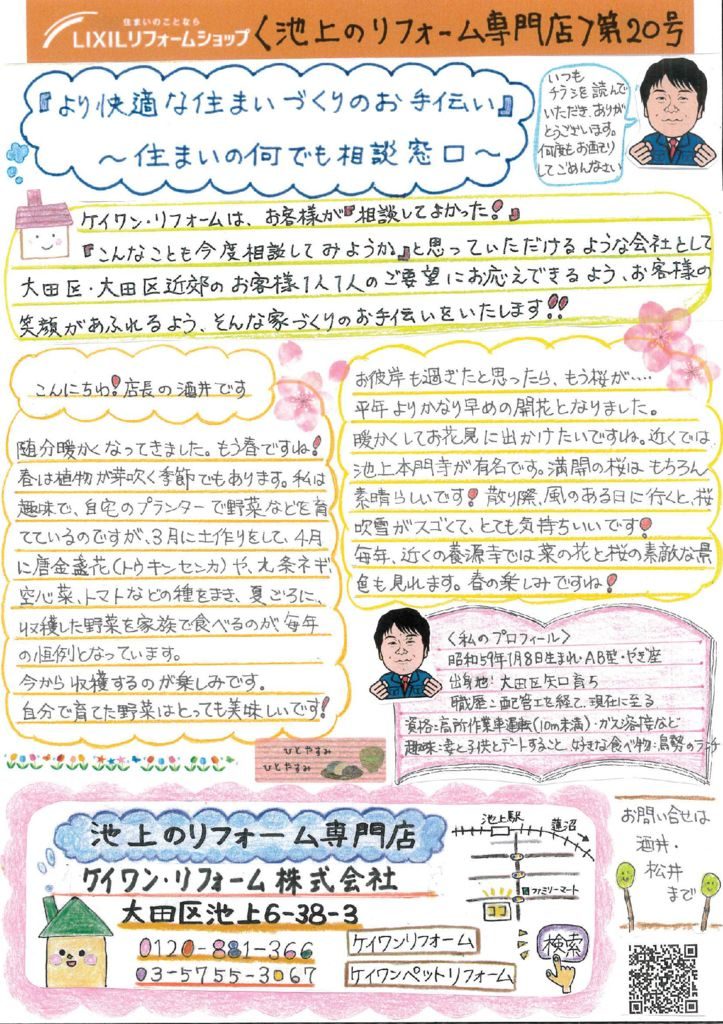 住まいのことなら
LIXILリフォームショップ
〈池上のリフォーム専門店〉第20号
『より快適な住まいづくりのお手伝い』
～住まいの何でも相談窓口～
いつも
チラシを読んで
いただき、ありが
とうございます。
何度もお直りし
てごめんなさい
ケイワン・リフォームは、お客様が『相談してよかった!』
『こんなことも今度相談してみようか』と思っていただけるような会社として
大田区・大田区近郊のお客様1人1人のご要望にお応えできるよう、お客様の
笑顔があふれるよう、そんな家づくりのお手伝いをいたします!!
こんにちわ!店長の酒井です
随分暖かくなってきました。もう春ですね!
春は植物が芽吹く季節でもあります。私は
趣味で、自宅のプランターで野菜などを育
てているのですが、3月に土作りをして、4月
に唐金盞花(トウキンセンカ)や、九条ネギ、
空心菜、トマトなどの種をまき、夏ごろに、
収穫した野菜を家族で食べるのが毎年
の恒例となっています。
今から収穫するのが楽しみです。
自分で育てた野菜はとっても美味しいです!
お彼岸も過ぎたと思ったら、もう桜が‥‥
平年よりかなり早めの開花となりました。
暖かくしてお花見に出かけたいですね。近くでは
池上本門寺が有名です。満開の桜はもちろん
素晴らしいです!散り際、風のある日に行くと、桜
吹雪がスゴくて、とても気持ちいいです!
毎年、近くの養源寺では菜の花と桜の素敵な景
色も見れます。春の楽しみですね!
〈私のプロフィール〉
昭和59年1月8日生まれ・AB型・やぎ座
出身地:大田区矢口育ち
職歴:配管工を経て、現在に至る
資格:高所作業車運転(10m未満)・ガス溶接など
趣味:妻と子供とデートすること、好きな食べ物:鳥勢のランチ
ひとやすみ
ひとやすみ
池上のリフォーム専門店
ケイワン・リフォーム株式会社
大田区池上6-38-3
0120-881-366
03-5755-3067
ケイワンリフォーム
ケイワンペットリフォーム
検索
池上駅
蓮沼
ファミリーマート
ココ
お問い合せは
酒井・
松井
まで